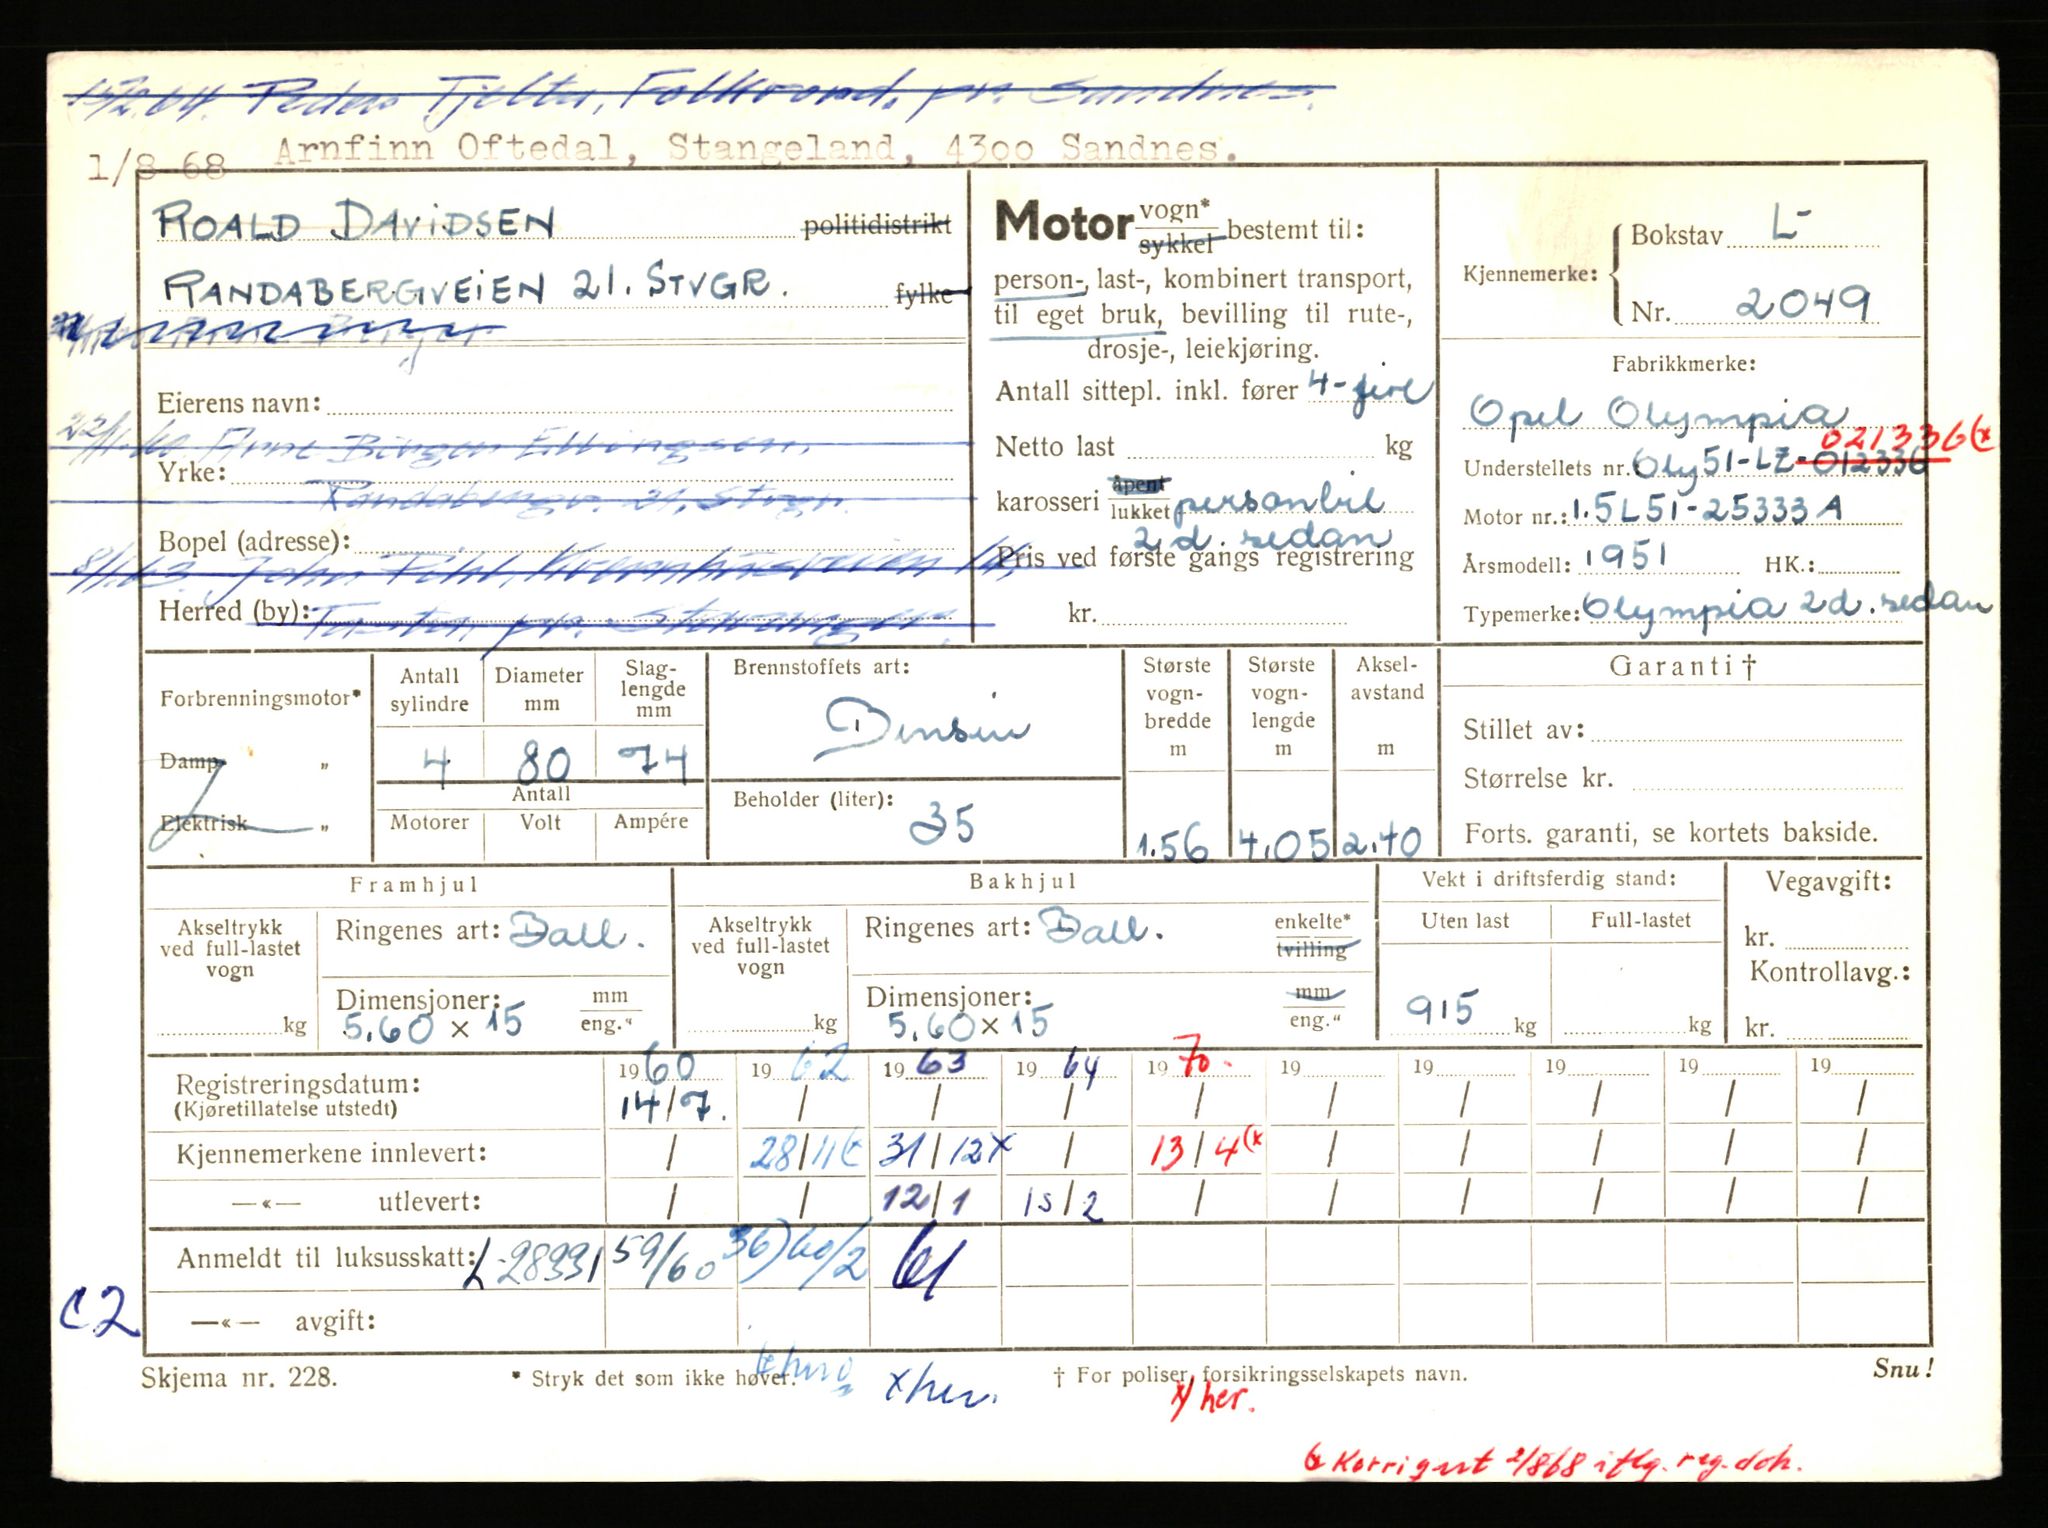 15/2.64. Peder Tjelta, Folkvord, pr. Sandnes.
1/8-68 Arnfinn Oftedal, Stangeland, 4300 Sandnes.
ROALD DAVIDSEN politidistrikt
RANDABERGVEIEN 21. STVGR. fylke
Eierens navn:
22/11.60 Arne Birger Ellingsen,
Yrke:
Randabergv. 21, Stvgr.
Bopel (adresse):
8/1.63. John
Herred (by): Tasta, pr. Stavanger.
Motor vogn* sykkel bestemt til:
person-, last-, kombinert transport,
til eget bruk, bevilling til rute-,
drosje-, leiekjøring.
Antall sittepl. inkl. fører 4-fire
Netto last kg
karosseri åpent lukket personbil
2 d. sedan
Pris ved første gangs registrering
kr.
Kjennemerke: Bokstav L-
Nr. 2049
Fabrikkmerke:
Opel Olympia
021336 (x
Understellets nr. Oly51-LZ-012336
Motor nr.: 1.5L51-25333A
Årsmodell: 1951 HK.:
Typemerke: Olympia 2d. sedan
Forbrenningsmotor*
Damp „
Elektrisk „
Antall sylindre Diameter mm Slaglengde mm
4 80 74
Antall
Motorer Volt Ampére
Brennstoffets art:
Bensin
Beholder (liter):
35
Største vogn-bredde m
1.56
Største vogn-lengde m
4.05
Aksel-avstand m
2.40
Garanti †
Stillet av:
Størrelse kr.
Forts. garanti, se kortets bakside.
Framhjul
Akseltrykk ved full-lastet vogn kg
Ringenes art: Ball.
Dimensjoner: mm eng."
5.60 x 15
Bakhjul
Akseltrykk ved full-lastet vogn kg
Ringenes art: Ball. enkelte* tvilling
Dimensjoner: mm eng."
5.60 x 15
Vekt i driftsferdig stand:
Uten last Full-lastet
915 kg kg
Vegavgift:
kr.
Kontrollavg.:
kr.
1960 1962 1963 1964 1970. 19 19 19 19 19
Registreringsdatum: 14/7. / / / / / / / / /
(Kjøretillatelse utstedt)
Kjennemerkene innlevert: / 28/11(x 31/12x / 13/4(x / / / / /
—«— utlevert: / / 12/1 15/2 / / / / / /
Anmeldt til luksusskatt: L-28331 59/60 36)60/2 61
C2
—«— avgift:
Skjema nr. 228. * Stryk det som ikke høver. † For poliser, forsikringsselskapets navn. Snu!
x her. x/ her.
(x Korrigert 2/868 iflg. reg. dok.